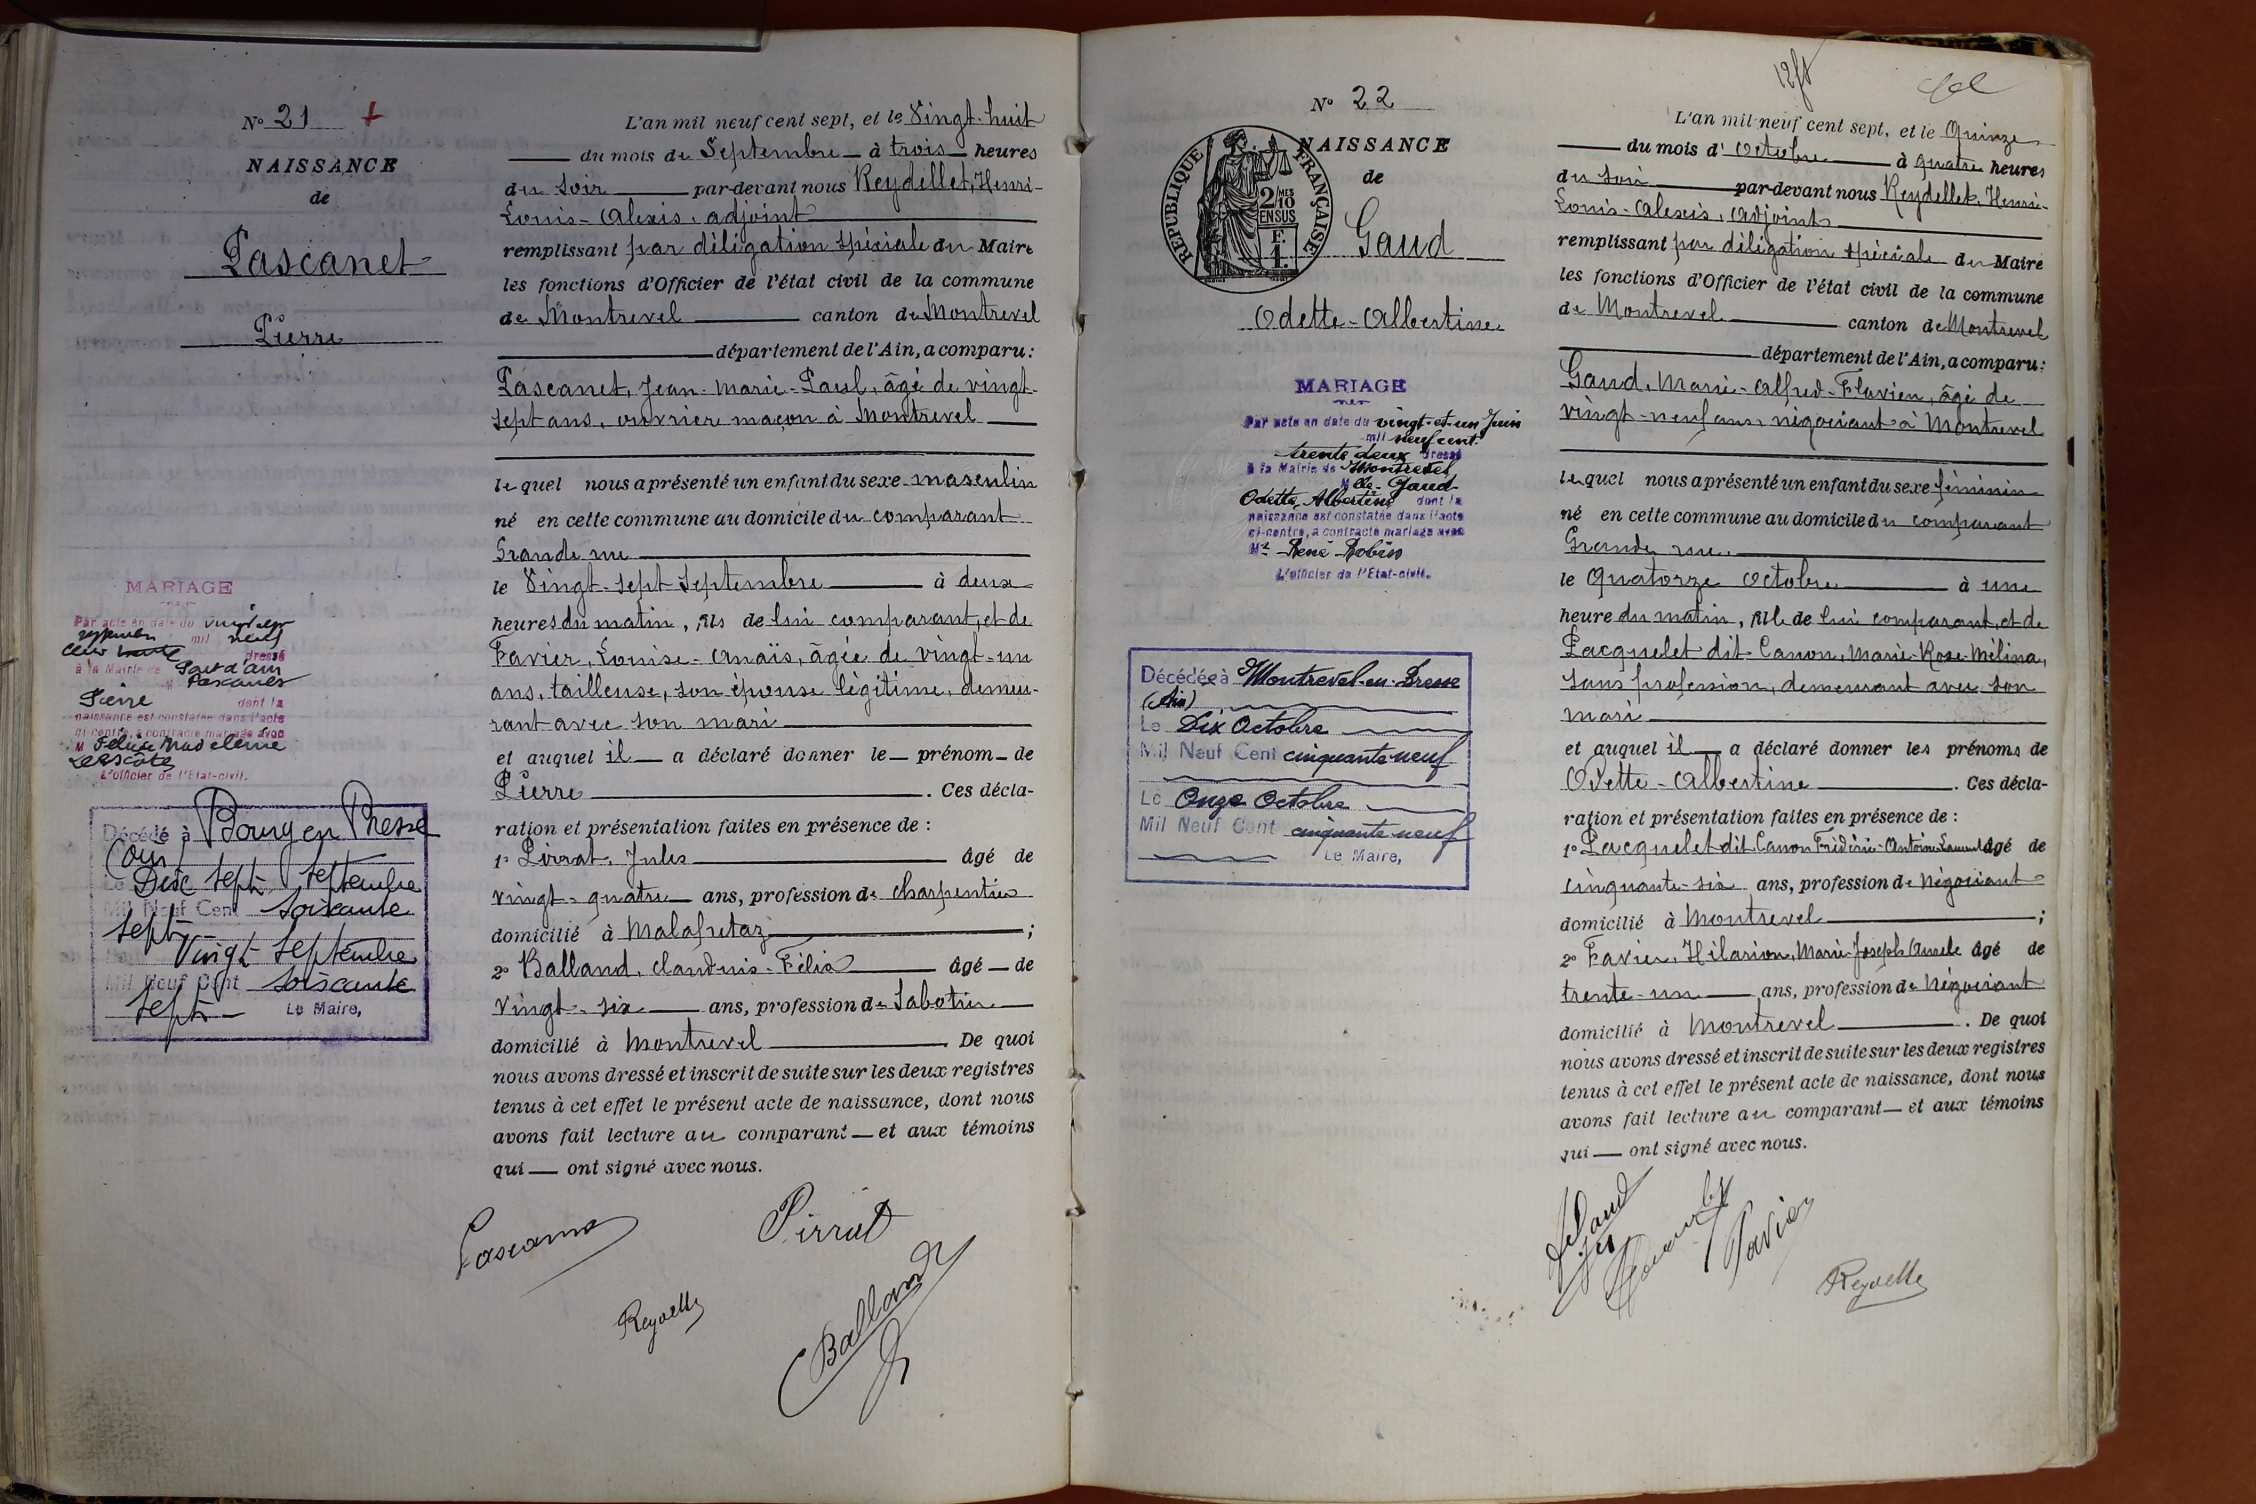 N° 21 +
NAISSANCE
de
Pascanet
Pierre
MARIAGE
Par acte en date du
mil neuf
cent trente dressé
à la Mairie de Pont d'ain
M Pascanet
Pierre dont la
naissance est constatée dans l'acte
ci-contre, a contracté mariage avec
M Madeleine
L'officier de l'Etat-civil.
Décédé à Bourg en Bresse
(Ain)
Le Dix sept Septembre
Mil Neuf Cent soixante
sept
Vingt Septembre
Mil Neuf Cent soixante
sept Le Maire,
L'an mil neuf cent sept, et le Vingt-huit
du mois de Septembre à trois heures
du soir par-devant nous Reydellet, Henri-
Louis-Alexis, adjoint
remplissant par délégation spéciale du Maire
les fonctions d'Officier de l'état civil de la commune
de Montrevel canton de Montrevel
département de l'Ain, a comparu:
Pascanet, Jean-Marie-Paul, âgé de vingt-
sept ans, ouvrier maçon à Montrevel
lequel nous a présenté un enfant du sexe masculin
né en cette commune au domicile du comparant
Grande rue
le Vingt-sept Septembre à deux
heures du matin, fils de lui comparant, et de
Favier, Louise-Anaïs, âgée de vingt-un
ans, tailleuse, son épouse légitime, demeu-
rant avec son mari
et auquel il a déclaré donner le prénom de
Pierre. Ces décla-
ration et présentation faites en présence de :
1° Pirrat, Jules âgé de
vingt-quatre ans, profession de charpentier
domicilié à Malafretaz ;
2° Balland, Claudius-Félix âgé de
vingt-six ans, profession de Sabotier
domicilié à Montrevel. De quoi
nous avons dressé et inscrit de suite sur les deux registres
tenus à cet effet le présent acte de naissance, dont nous
avons fait lecture au comparant et aux témoins
qui ont signé avec nous.
Pirrat
Balland
N° 22
NAISSANCE
de
RÉPUBLIQUE FRANÇAISE
2/10 MES
EN SUS
F.
1.
Gaud
Odette-Albertine
MARIAGE
Par acte en date du vingt-et-un Juin
mil neuf cent
trente deux dressé
à la Mairie de Montrevel
Mlle Gaud
Odette, Albertine dont la
naissance est constatée dans l'acte
ci-contre, a contracté mariage avec
Mr René Robin
L'officier de l'Etat-civil.
Décédée à Montrevel-en-Bresse
(Ain)
Le Dix Octobre
Mil Neuf Cent cinquante-neuf
Le Onze Octobre
Mil Neuf Cent cinquante-neuf
Le Maire,
L'an mil neuf cent sept, et le Quinze
du mois d'Octobre à quatre heures
du soir par-devant nous Reydellet, Henri-
Louis-Alexis, adjoint
remplissant par délégation spéciale du Maire
les fonctions d'Officier de l'état civil de la commune
de Montrevel canton de Montrevel
département de l'Ain, a comparu:
Gaud, Marie-Alfred-Flavien, âgé de
vingt-neuf ans, négociant à Montrevel
lequel nous a présenté un enfant du sexe féminin
né en cette commune au domicile du comparant
Grande rue
le Quatorze Octobre à une
heure du matin, fille de lui comparant, et de
Pacquelet dit Canon, Marie-Rose-Mélina,
sans profession, demeurant avec son
mari
et auquel il a déclaré donner les prénoms de
Odette-Albertine. Ces décla-
ration et présentation faites en présence de :
1° Pacquelet dit Canon Frédéric-Antoine âgé de
cinquante-six ans, profession de Négociant
domicilié à Montrevel ;
2° Favier, Hilarion, Marie-Joseph âgé de
trente-un ans, profession de Négociant
domicilié à Montrevel. De quoi
nous avons dressé et inscrit de suite sur les deux registres
tenus à cet effet le présent acte de naissance, dont nous
avons fait lecture au comparant et aux témoins
qui ont signé avec nous.
Favier